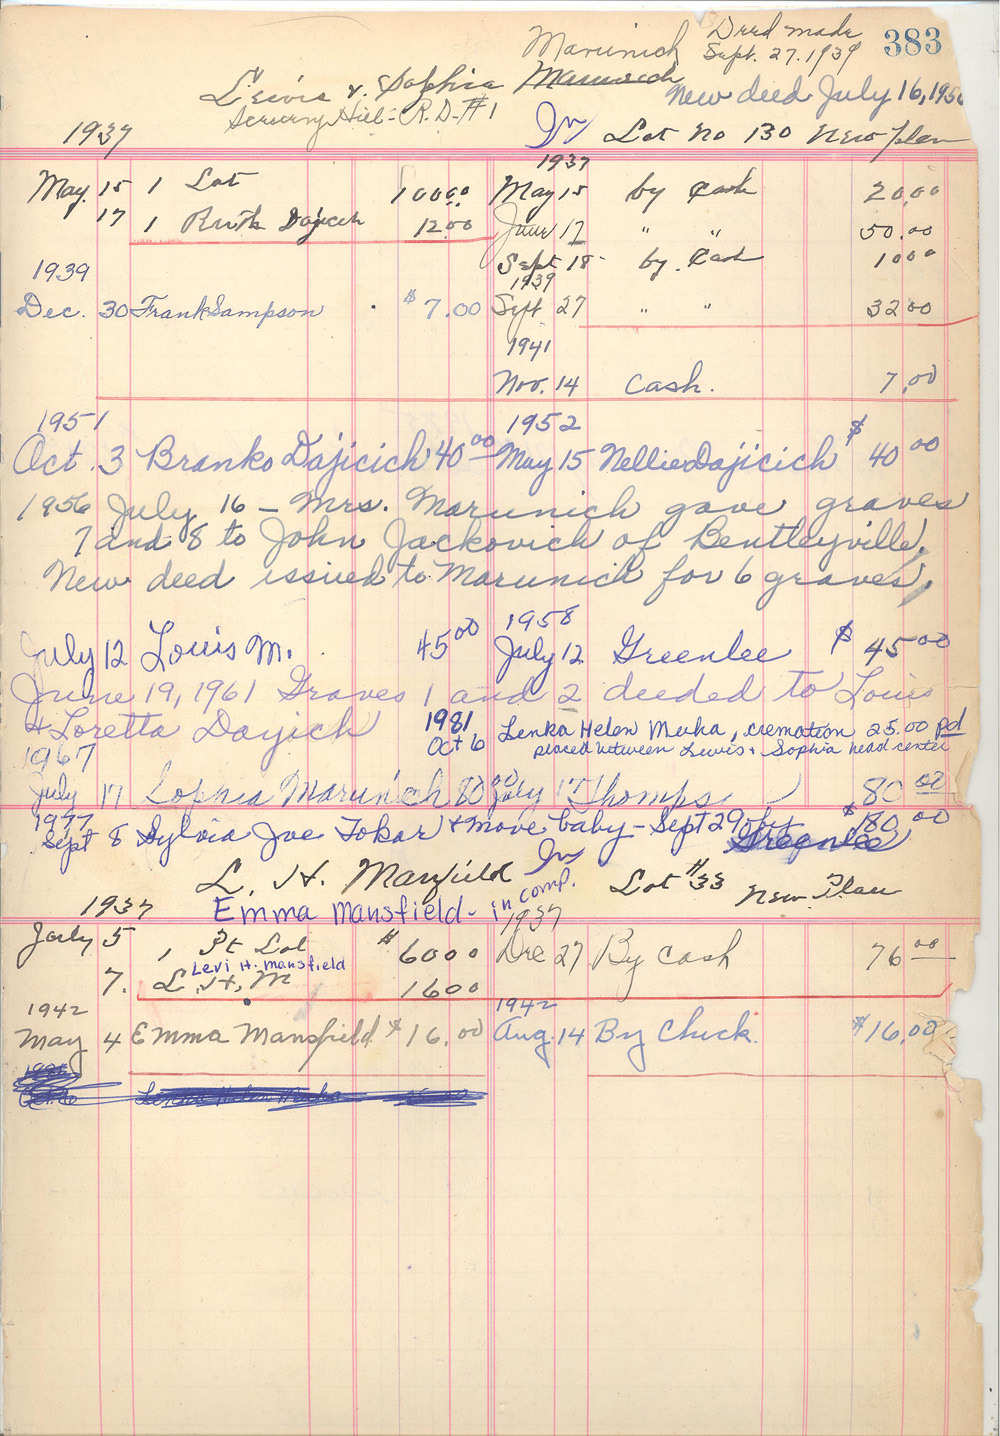 Marunich Deed made 383
Sept. 27. 1939
Lewis & Sophia
New deed July 16, 195
Scenery Hill - R.D. #1
1937 In Lot No 130 New plan
1937
May. 15 1 Lot 100.00 May 15 by Cash 20.00
17 1 Ruth Dajicich 12.00 June 17 " " 50.00
Sept 18 - by Cash 10.00
1939 1939
Dec. 30 Frank Sampson $7.00 Sept 27 " 32.00
1941
Nov. 14 Cash. 7.00
1951 1952
Oct. 3 Branko Dajicich 40.00 May 15 Nellie Dajicich $40.00
1956 July 16 - Mrs. Marunich gave graves
7 and 8 to John Jackovich of Bentleyville.
New deed issued to Marunich for 6 graves,
1958
July 12 Louis M. 45.00 July 12 Greenlee $45.00
June 19, 1961 Graves 1 and 2 deeded to Louis
& Loretta Dajich 1981 Lenka Helen Muha, cremation 25.00 pd
Oct 6 placed between Lewis & Sophia head center
1967
July 17 Sophia Marunich 80.00 July 17 Thomps 80.00
1977
Sept 8 Sylvia Joe Tokar & move baby - Sept 29 by $180.00
Greenlee
In
L. H. Mansfield Lot #33 New Plan
1937 Emma Mansfield - in comp.
1937
July 5 1 Pt Lot $60.00 Dec 27 By Cash 76.00
Levi H. Mansfield
7. L. H. M 16.00
1942 1942
May 4 Emma Mansfield $16.00 Aug. 14 By Check. $16.00
Lenka Helen Muha